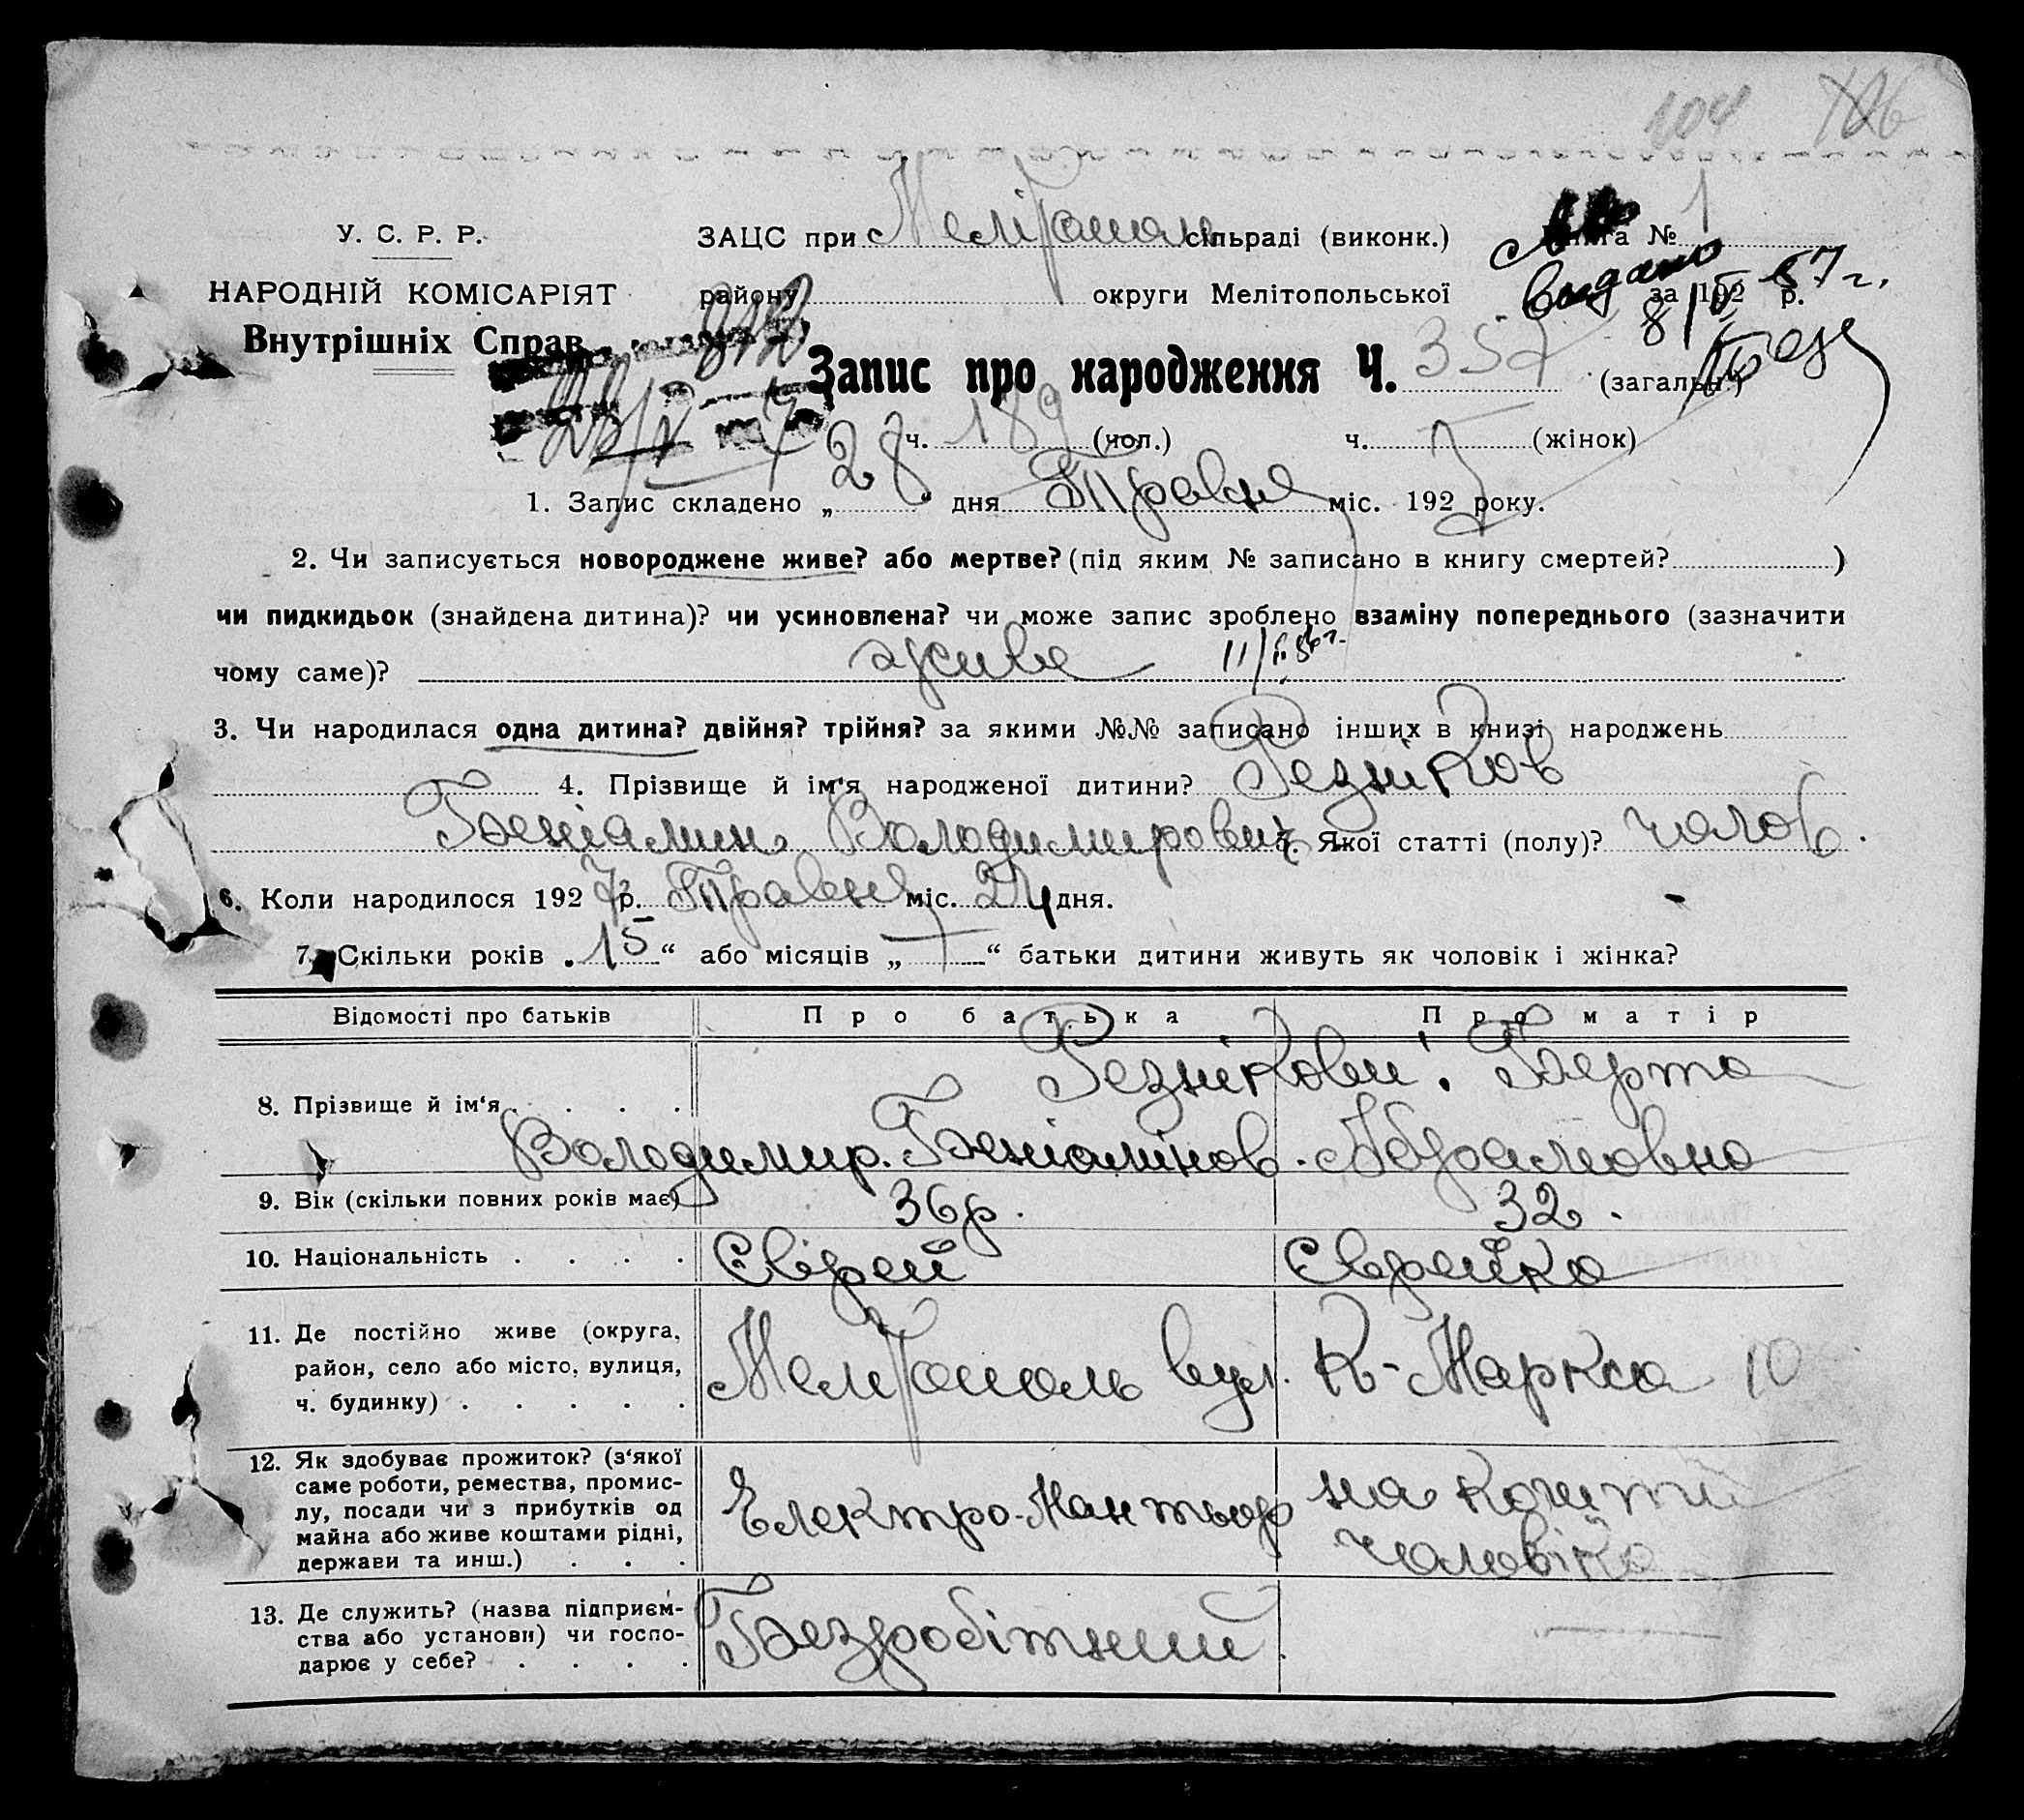 104
У. С. Р. Р.
ЗАЦС при Меліτопол сільраді (виконк.) Книга № 1
НАРОДНІЙ КОМІСАРІЯТ
району округи Мелітопольської за 192 р.
Внутрішніх Справ
выдано
8/V 57 г.
Запис про народження Ч. 357 (загальн.)
ч. 189 (чол.) ч. (жінок)
1. Запис складено „ 28 “ дня Травня міс. 192 7 року.
2. Чи записується новороджене живе? або мертве? (під яким № записано в книгу смертей? )
чи пидкидьок (знайдена дитина)? чи усиновлена? чи може запис зроблено взаміну попереднього (зазначити
чому саме)? живе
3. Чи народилася одна дитина? двійня? трійня? за якими №№ записано інших в книзі народжень
4. Прізвище й ім‘я народженої дитини? Резніков
Беніамин Володимирович 5. Якої статті (полу)? чолов.
6. Коли народилося 192 7 р. Травня міс. 24 дня.
7. Скільки років „ 15 “ або місяців „ — “ батьки дитини живуть як чоловік і жінка?
Відомості про батьків Про батька Про матір
8. Прізвище й ім‘я . . . . Резнікови: Берта
Володимир. Беніамінов. Абрамовна
9. Вік (скільки повних років має) 36 р. 32.
10. Національність . . . . Єврей Єврейка
11. Де постійно живе (округа,
район, село або місто, вулиця,
ч. будинку) . . . . . Мелітополь вул. К-Маркса 10
12. Як здобуває прожиток? (з‘якої
саме роботи, ремества, промис-
лу, посади чи з прибутків од
майна або живе коштами рідні,
держави та инш.) . . . Електро-Мантьор на кошти
чоловіка
13. Де служить? (назва підприєм-
ства або установи) чи госпо-
дарює у себе? . . . . Безробітний